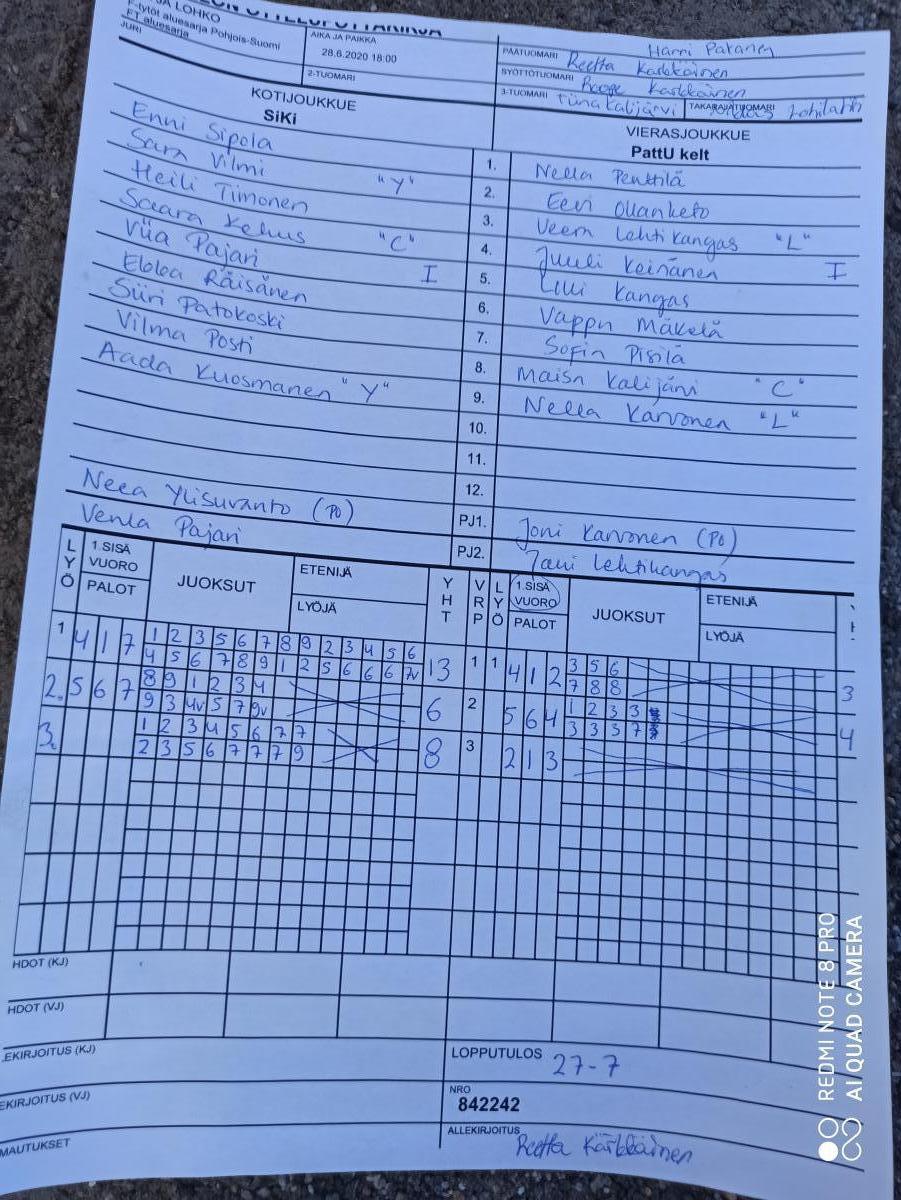 F-tytöt aluesarja Pohjois-Suomi
FT aluesarja
JURI
AIKA JA PAIKKA
28.6.2020 18:00
2-TUOMARI
PÄÄTUOMARI Harri Pakanen
SYÖTTÖTUOMARI Reetta Kärkkäinen
3-TUOMARI Kärkkäinen
Tiina Kalijärvi TAKARAJATUOMARI
KOTIJOUKKUE
SiKi
VIERASJOUKKUE
PattU kelt
Enni Sipola
1. Nella Penttilä
Sara Vilmi "Y"
2. Eevi Ollanketo
Heili Timonen
3. Veera Lehtikangas "L"
Saara Kehus "C"
4. Juuli Keinänen I
Viia Pajari I
5. Lilli Kangas
Eloloa Räisänen
6. Vappu Mäkelä
Siiri Patokoski
7. Sofia Pisilä
Vilma Posti
8. Maisa Kalijärvi "C"
Aada Kuosmanen "Y"
9. Nella Karvonen "L"
10.
11.
12.
Neea Ylisuvanto (PO)
PJ1. Joni Karvonen (PO)
Venla Pajari
PJ2. Jani Lehtikangas
LYÖ 1.SISÄ VUORO PALOT JUOKSUT ETENIJÄ LYÖJÄ YHT VRP LYÖ 1.SISÄ VUORO PALOT JUOKSUT ETENIJÄ LYÖJÄ
1 4 1 7 1 2 3 5 6 7 8 9 2 3 4 5 6 13 1 1 4 1 2 3 5 6 3
4 5 6 7 8 9 1 2 5 6 6 6 7v 7 8 8
2. 5 6 7 8 9 1 2 3 4 6 2 5 6 4 1 2 3 3 4
9 3 4v 5 7 9v 3 3 3 7
3. 1 2 3 4 5 6 7 7 8 3 2 1 3
2 3 5 6 7 7 7 9
HDOT (KJ)
HDOT (VJ)
EKIRJOITUS (KJ)
LOPPUTULOS 27-7
EKIRJOITUS (VJ)
NRO
842242
MAUTUKSET
ALLEKIRJOITUS Reetta Kärkkäinen
REDMI NOTE 8 PRO
AI QUAD CAMERA